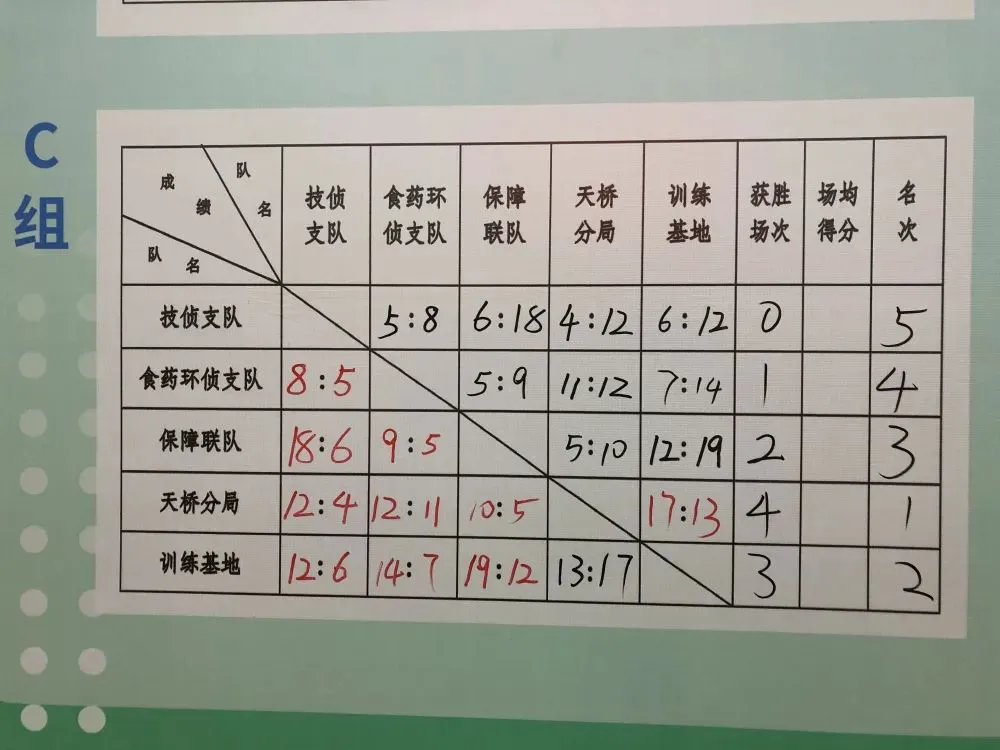 C
组
成绩
队名
队名
技侦支队 食药环侦支队 保障联队 天桥分局 训练基地 获胜场次 场均得分 名次
技侦支队 5:8 6:18 4:12 6:12 0 5
食药环侦支队 8:5 5:9 11:12 7:14 1 4
保障联队 18:6 9:5 5:10 12:19 2 3
天桥分局 12:4 12:11 10:5 17:13 4 1
训练基地 12:6 14:7 19:12 13:17 3 2